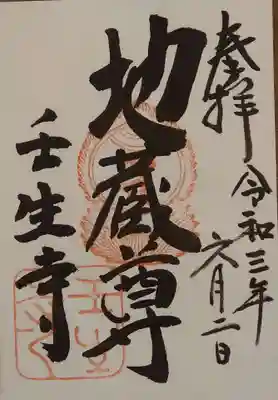 奉拝 令和三年
六月二日
地蔵尊
壬生寺